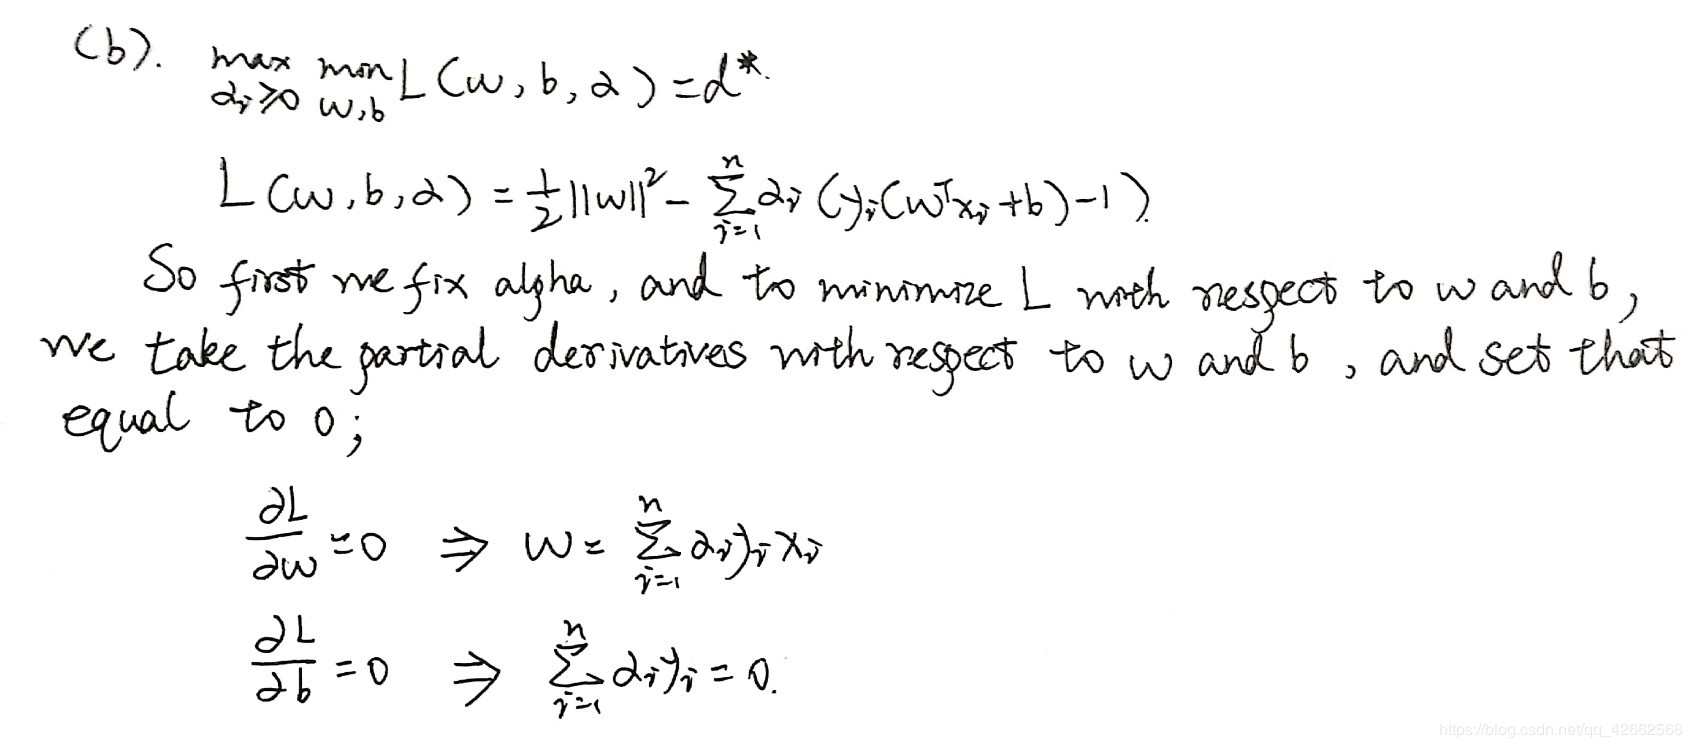 (b). max min L(w, b, α) = d*.
αi⩾0 w,b
L(w, b, α) = 1/2 ||w||² - ∑_{i=1}^{n} αi (yi(wᵀxi + b) - 1).
So first we fix alpha, and to minimize L with respect to w and b,
we take the partial derivatives with respect to w and b, and set that
equal to 0;
∂L/∂w = 0 ⇒ w = ∑_{i=1}^{n} αi yi xi
∂L/∂b = 0 ⇒ ∑_{i=1}^{n} αi yi = 0.
https://blog.csdn.net/qq_42662568